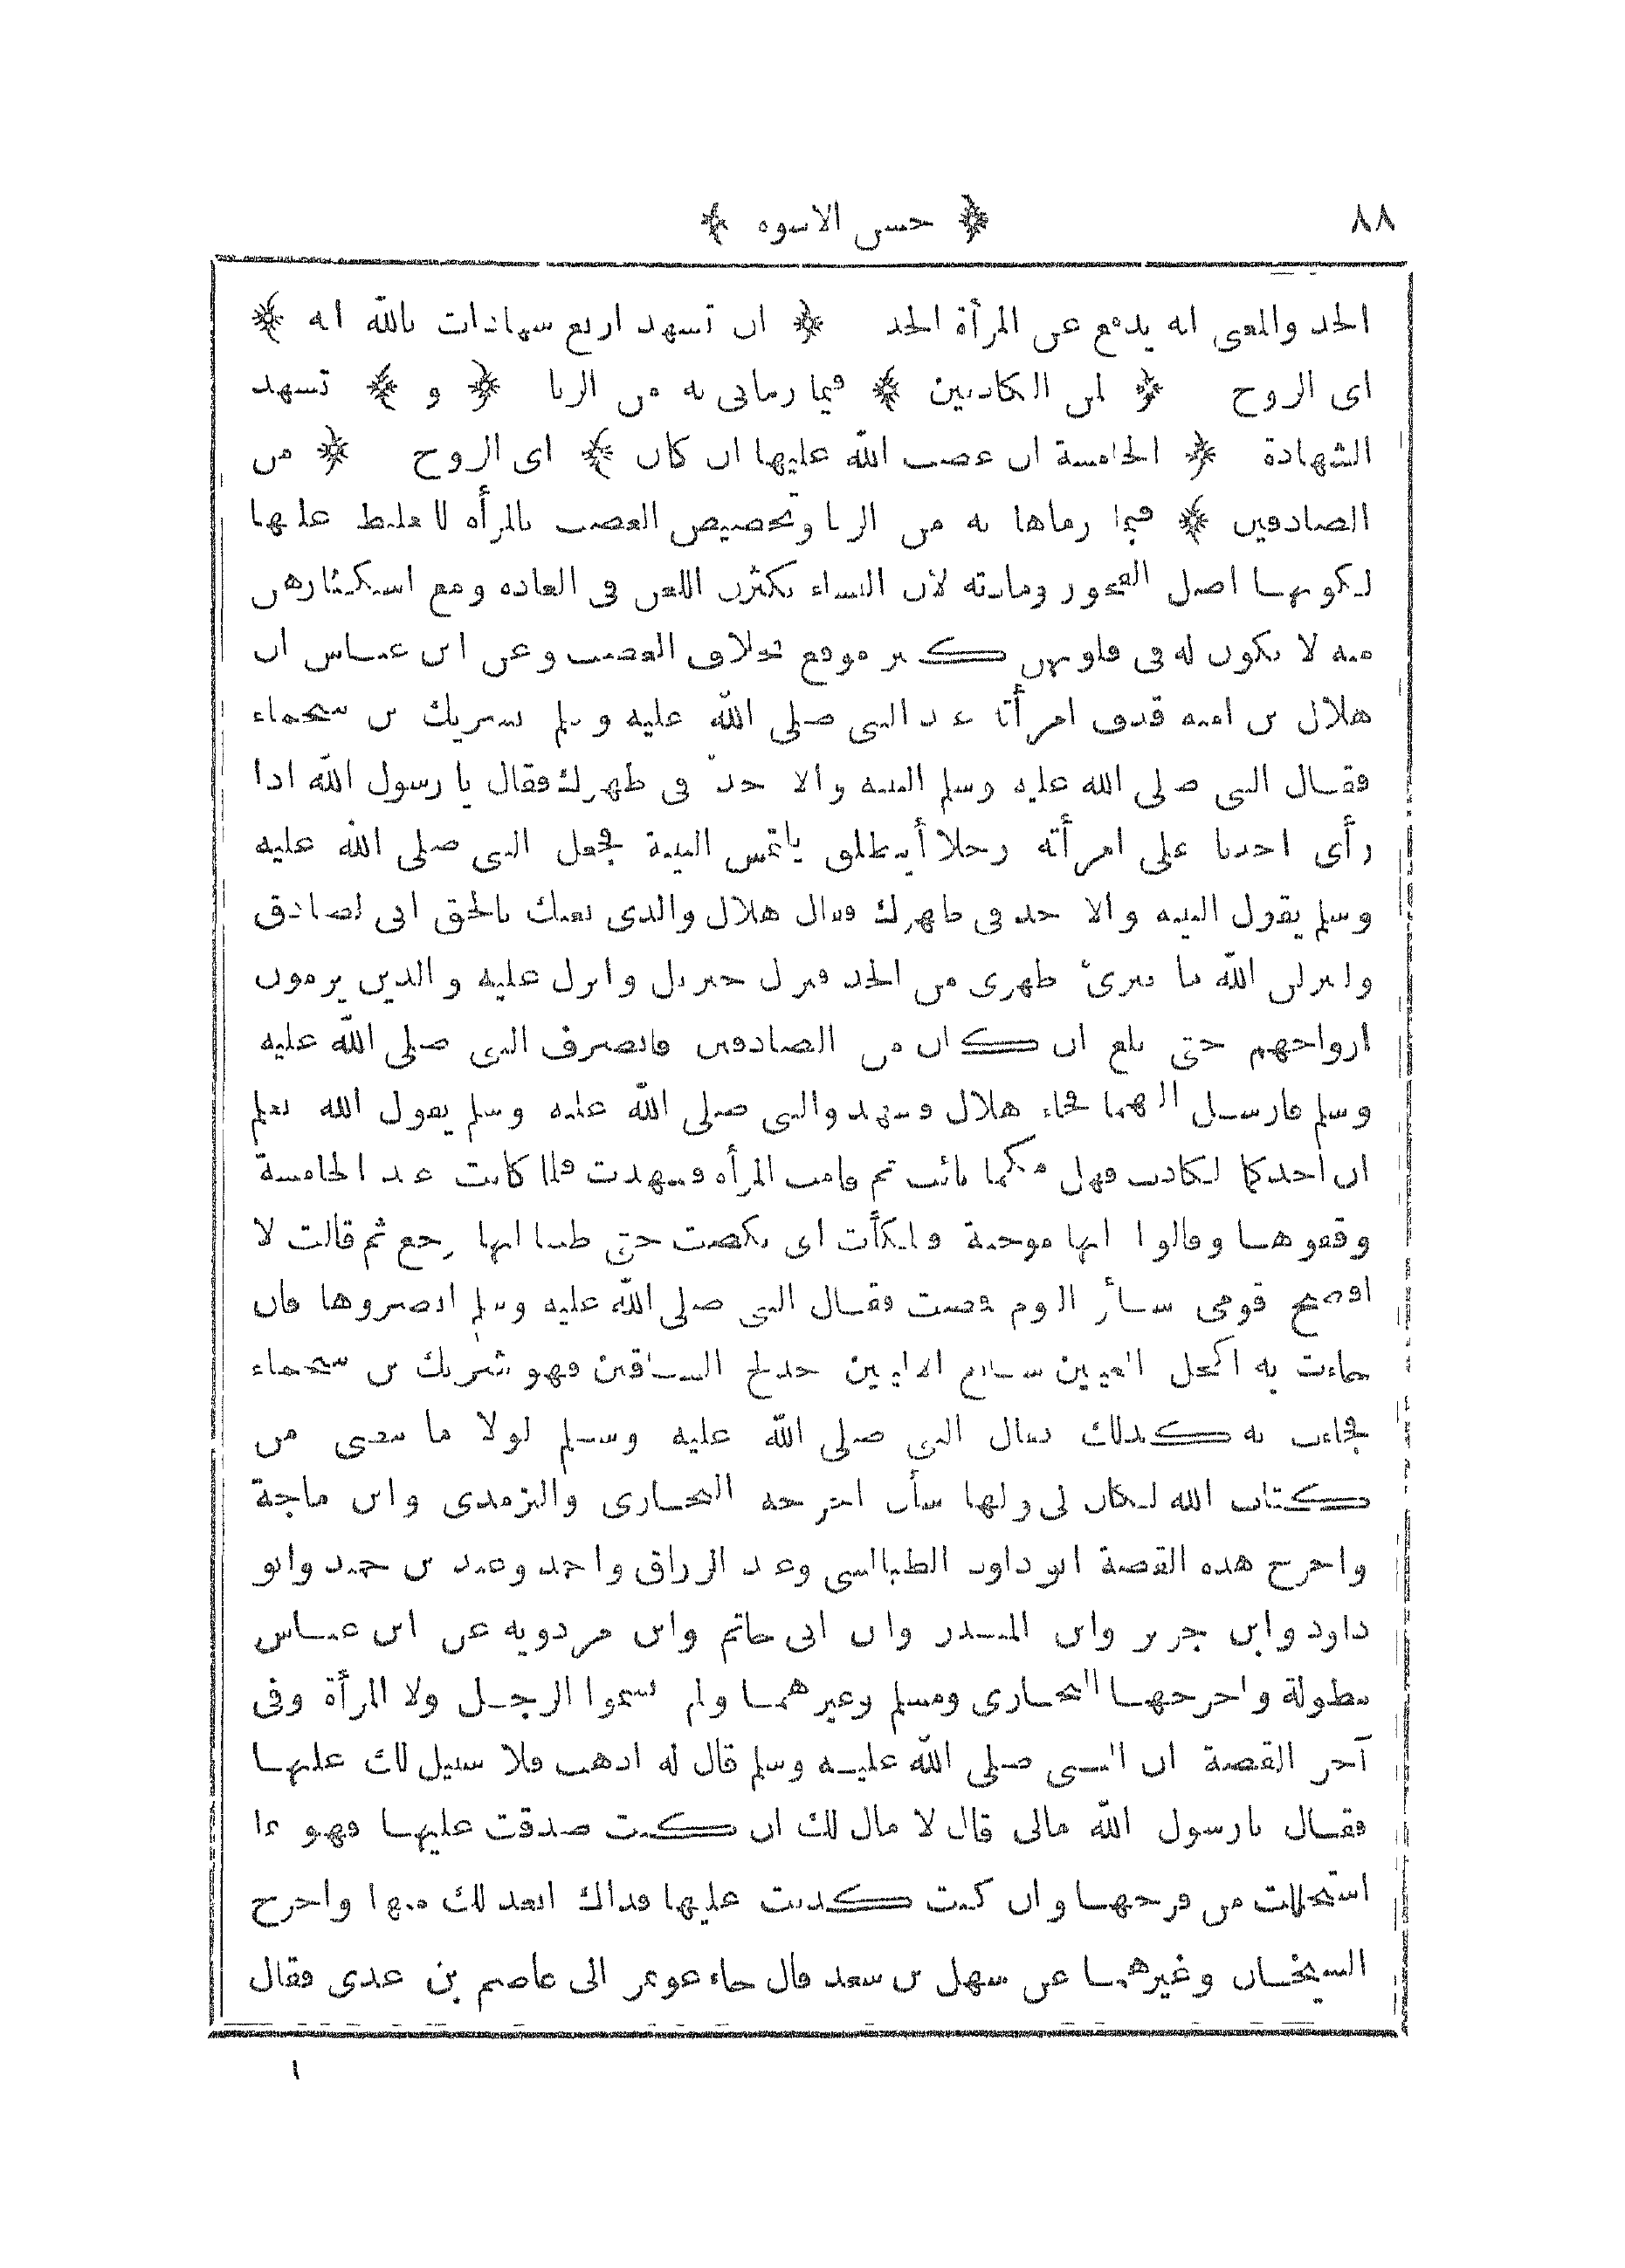 ٨٨ ﴿ حسن الاسوة ﴾
الحد والمعنى انه يدفع عن المرأة الحد ﴿ ان تشهد اربع شهادات بالله انه ﴾
اى الزوج ﴿ لمن الكاذبين ﴾ فيما رمانى به من الزنا ﴿ و ﴾ تشهد
الشهادة ﴿ الخامسة ان غضب الله عليها ان كان ﴾ اى الزوج ﴿ من
الصادقين ﴾ فيما رماها به من الزنا وتخصيص الغضب بالمرأة للتغليظ عليها
لكونها اصل الفجور ومادته لان النساء يكثرن اللعن فى العادة ومع استكثارهن
منه لا يكون له فى قلوبهن كبير موقع بخلاف الغضب وعن ابن عباس ان
هلال بن امية قذف امرأته عند النبى صلى الله عليه وسلم بشريك بن سحماء
فقال النبى صلى الله عليه وسلم البينة والا حد فى ظهرك فقال يا رسول الله اذا
رأى احدنا على امرأته رجلا أينطلق يلتمس البينة فجعل النبى صلى الله عليه
وسلم يقول البينة والا حد فى ظهرك فقال هلال والذى بعثك بالحق انى لصادق
ولينزلن الله ما يبرئ ظهرى من الحد فنزل جبريل وانزل عليه والذين يرمون
ازواجهم حتى بلغ ان كان من الصادقين فانصرف النبى صلى الله عليه
وسلم فارسل اليهما فجاء هلال فشهد والنبى صلى الله عليه وسلم يقول الله يعلم
ان احدكما لكاذب فهل منكما تائب ثم قامت المرأة فشهدت فلما كانت عند الخامسة
وقفوها وقالوا انها موجبة فتلكأت اى نكصت حتى ظننا انها ترجع ثم قالت لا
افضح قومى سائر اليوم فمضت فقال النبى صلى الله عليه وسلم ابصروها فان
جاءت به اكحل العينين سابغ الاليتين خدلج الساقين فهو لشريك بن سحماء
فجاءت به كذلك فقال النبى صلى الله عليه وسلم لولا ما مضى من
كتاب الله لكان لى ولها شأن اخرجه البخارى والترمذى وابن ماجة
واخرج هذه القصة ابو داود الطيالسى وعبد الرزاق واحمد وعبد بن حميد وابو
داود وابن جرير وابن المنذر وابن ابى حاتم وابن مردويه عن ابن عباس
مطولة واخرجها البخارى ومسلم وغيرهما ولم يسموا الرجل ولا المرأة وفى
آخر القصة ان النبى صلى الله عليه وسلم قال له اذهب فلا سبيل لك عليها
فقال يا رسول الله مالى قال لا مال لك ان كنت صدقت عليها فهو بما
استحللت من فرجها وان كنت كذبت عليها فذاك ابعد لك منها واخرج
الشيخان وغيرهما عن سهل بن سعد قال جاء عويمر الى عاصم بن عدى فقال